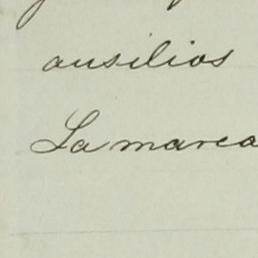 ausilios
La marea